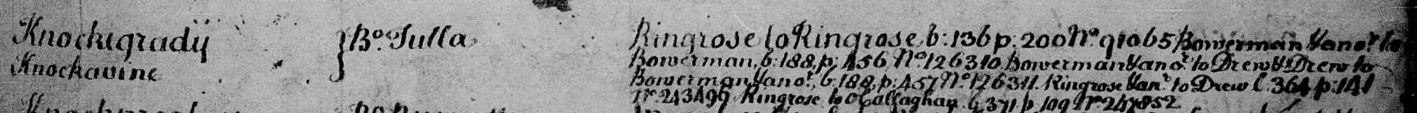 Knockigrady } Bo. Tulla Ringrose to Ringrose b: 136 p: 200 No. 91065 Bowerman & anor. to
Knockavine Bowerman, b: 188, p: 456 No. 126310 Bowerman & anor. to Drew & Drew to
Bowerman & anor, b: 188, p: 457 No. 126311. Ringrose & anr. to Drew b. 364 p: 141
No. 243499 Ringrose to O'Callaghan b 371 p 109 No. 247852